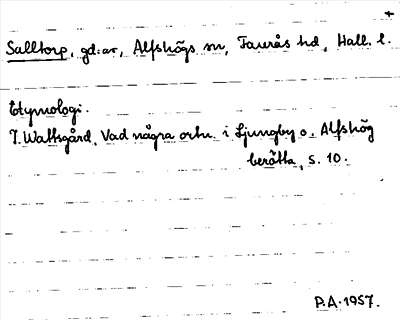 Salltorp, gd:ar, Alfshögs sn, Faurås hd, Hall. l.
Etymologi.
T. Wattsgård, Vad några ortn. i Ljungby o. Alfshög
berätta, s. 10.
P.A. 1957.